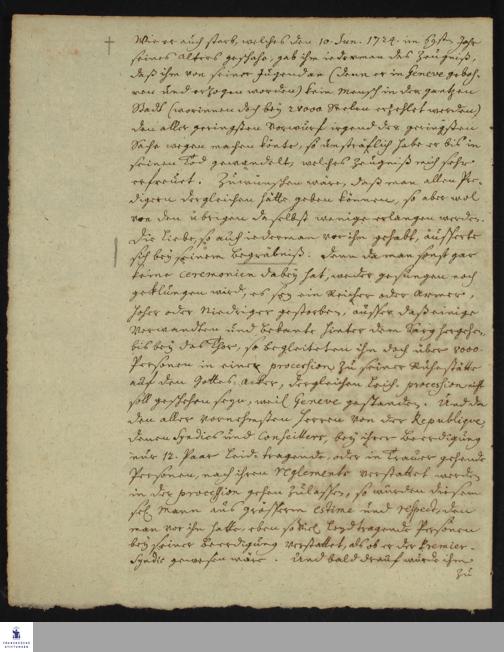 Wie er auch starb, welches den 10. Jun. 1724. im 69sten Jahr
seines Alters geschahe, gab ihm iederman das Zeugniß,
daß ihm von seiner Jugend an (denn er in Geneve geboh-
ren und erzogen worden) kein Mensch in der gantzen
Stadt (worinnen doch bey 24000 Seelen erzehlet werden)
den aller geringsten Vorwurf irgend der geringsten
Sache wegen machen könte, so unsträflich habe er bis in
seinen Tod gewandelt, welches Zeugniß mich sehr
erfreuet. Zuwünschen wäre, daß man allen Pre-
digern dergleichen hätte geben können, so aber wol
von den übrigen daselbst wenige erlangen werden.
Die Liebe, so auch iederman vor ihn gehabt, äusserte
sich bey seinem Begräbniß. Denn da man sonst gar
keine Ceremonien dabey hat, weder gesungen noch
geklungen wird, es sey ein Reicher oder Armer,
Hoher oder Niedriger gestorben, ausser daß einige
Verwandten und Bekante hinter dem Sarg hergehen,
bis bey das Thor, so begleiteten ihn doch über
Personen in einer procession zu seiner Ruhestätte
auf den Gottes Acker, dergleichen Leich-procession nicht
soll geschehen seyn, weil Geneve gestanden. Und da
den aller vornehmsten Herren von der Republique,
denen Syndics und Conseillers, bey ihrer Beerdigung
nur 12. Paar Leidtragende, oder in Trauer gehende
Personen, nach ihren Reglements verstattet werden
in der procession gehen zulassen, so wurden diesem
sel. Mann aus grosserm estime und respect, den
man vor ihn hatte, eben so viel Leydtragende Personen
bey seiner Beerdigung verstattet, als ob er der Premier-
Syndic gewesen wäre. Und bald drauf wurde ihm
zu
FRANCKESCHE
STIFTUNGEN